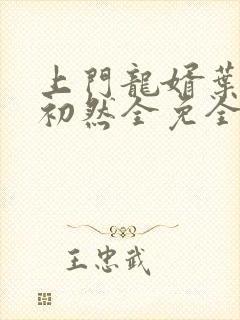 上門龍婿葉
初然全免全
王忠武